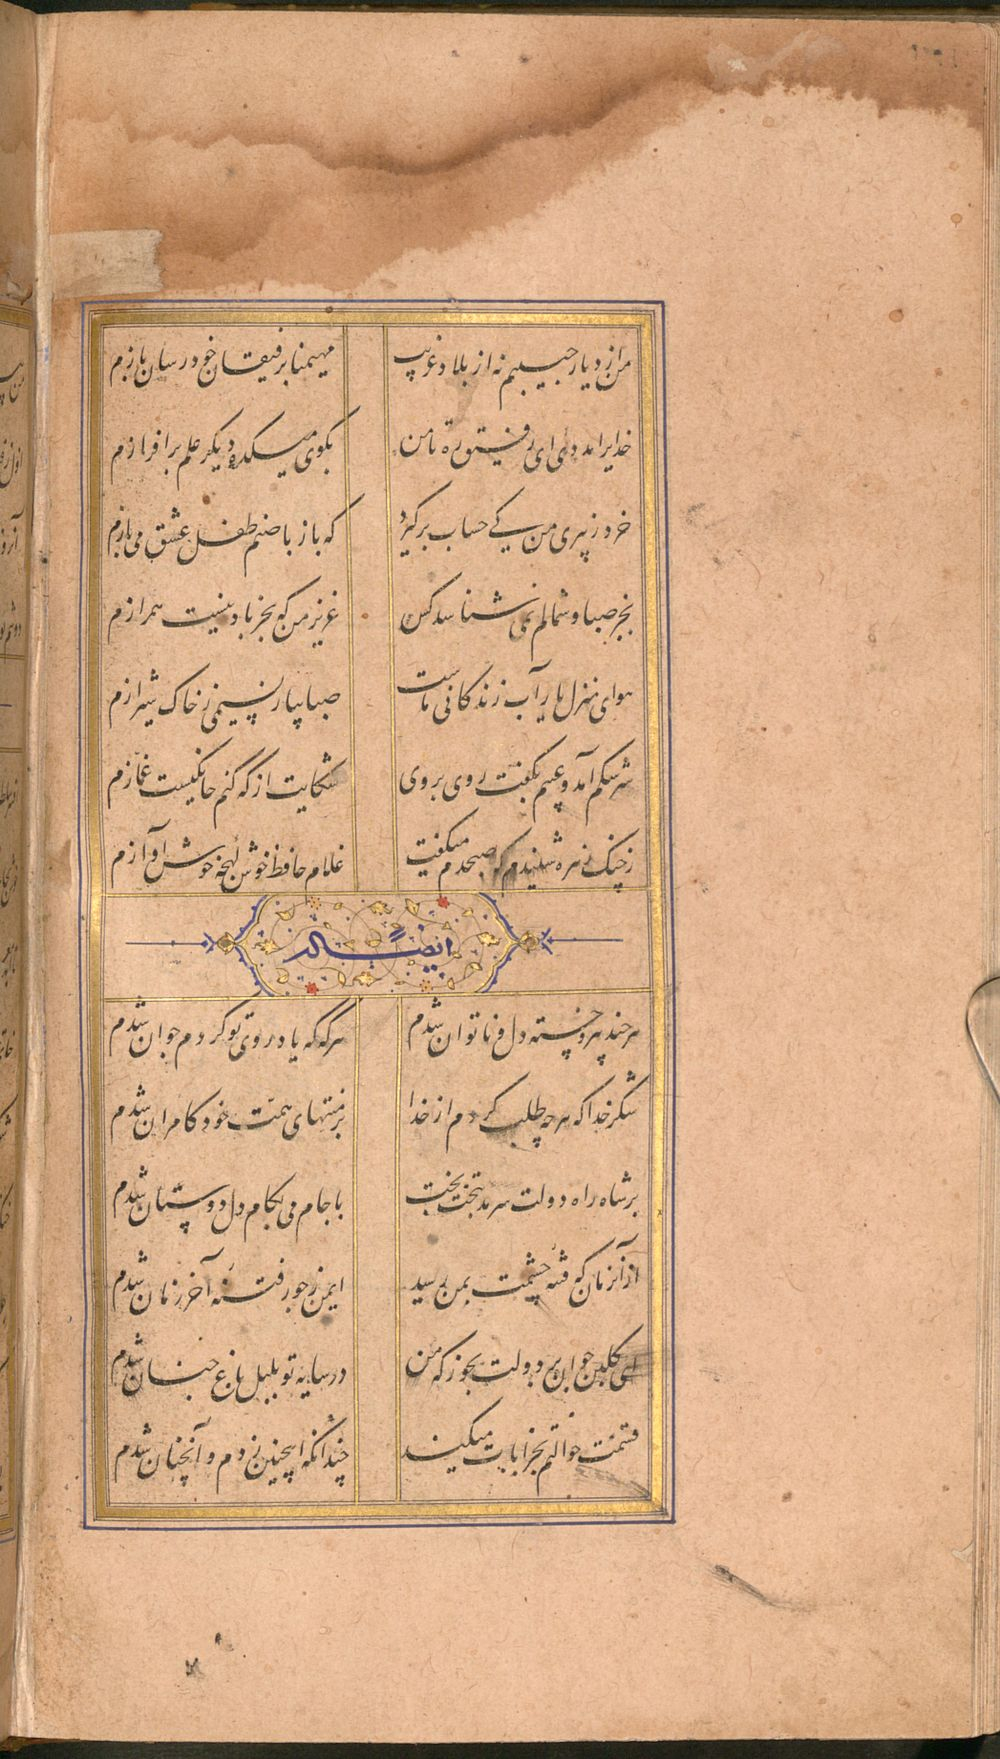 من از دیار حبیبم نه از بلاد غریب
مهیمنا برفیقان خود رسان بازم
خدایرا مددی ای رفیق ره تا من
بکوی میکده دیکر علم برافرازم
خرد ز پیری من کی حساب برکیرد
که باز با صنم طفل عشق می بازم
بجز صبا و شمالم نمی شناسد کس
عزیز من که بجز باد نیست همرازم
هوای منزل یار آب زندکانی ماست
صبا بیار نسیمی ز خاک شیرازم
سرشکم آمد و عیبم بکفت روی بروی
شکایت از که کنم خانکیست غمازم
ز چنک زهره شنیدم که صبحدم میکفت
غلام حافظ خوش لهجه خوش آوازم
ایضاً له
هر چند پیر و خسته دل و ناتوان شدم
هرکه که یاد روی تو کردم جوان شدم
شکر خدا که هر چه طلب کردم از خدا
بر منتهای همت خود کامران شدم
بر شاه راه دولت سرمد بتخت بخت
با جام می بکام دل دوستان شدم
از آنزمان که فتنه چشمت بمن رسید
ایمن ز جور فتنه آخر زمان شدم
ای کلبن جوان بر دولت بخور که من
در سایه تو بلبل باغ جنان شدم
قسمت حوالتم بخرابات میکند
چندانکه اینچنین زدم و آنچنان شدم